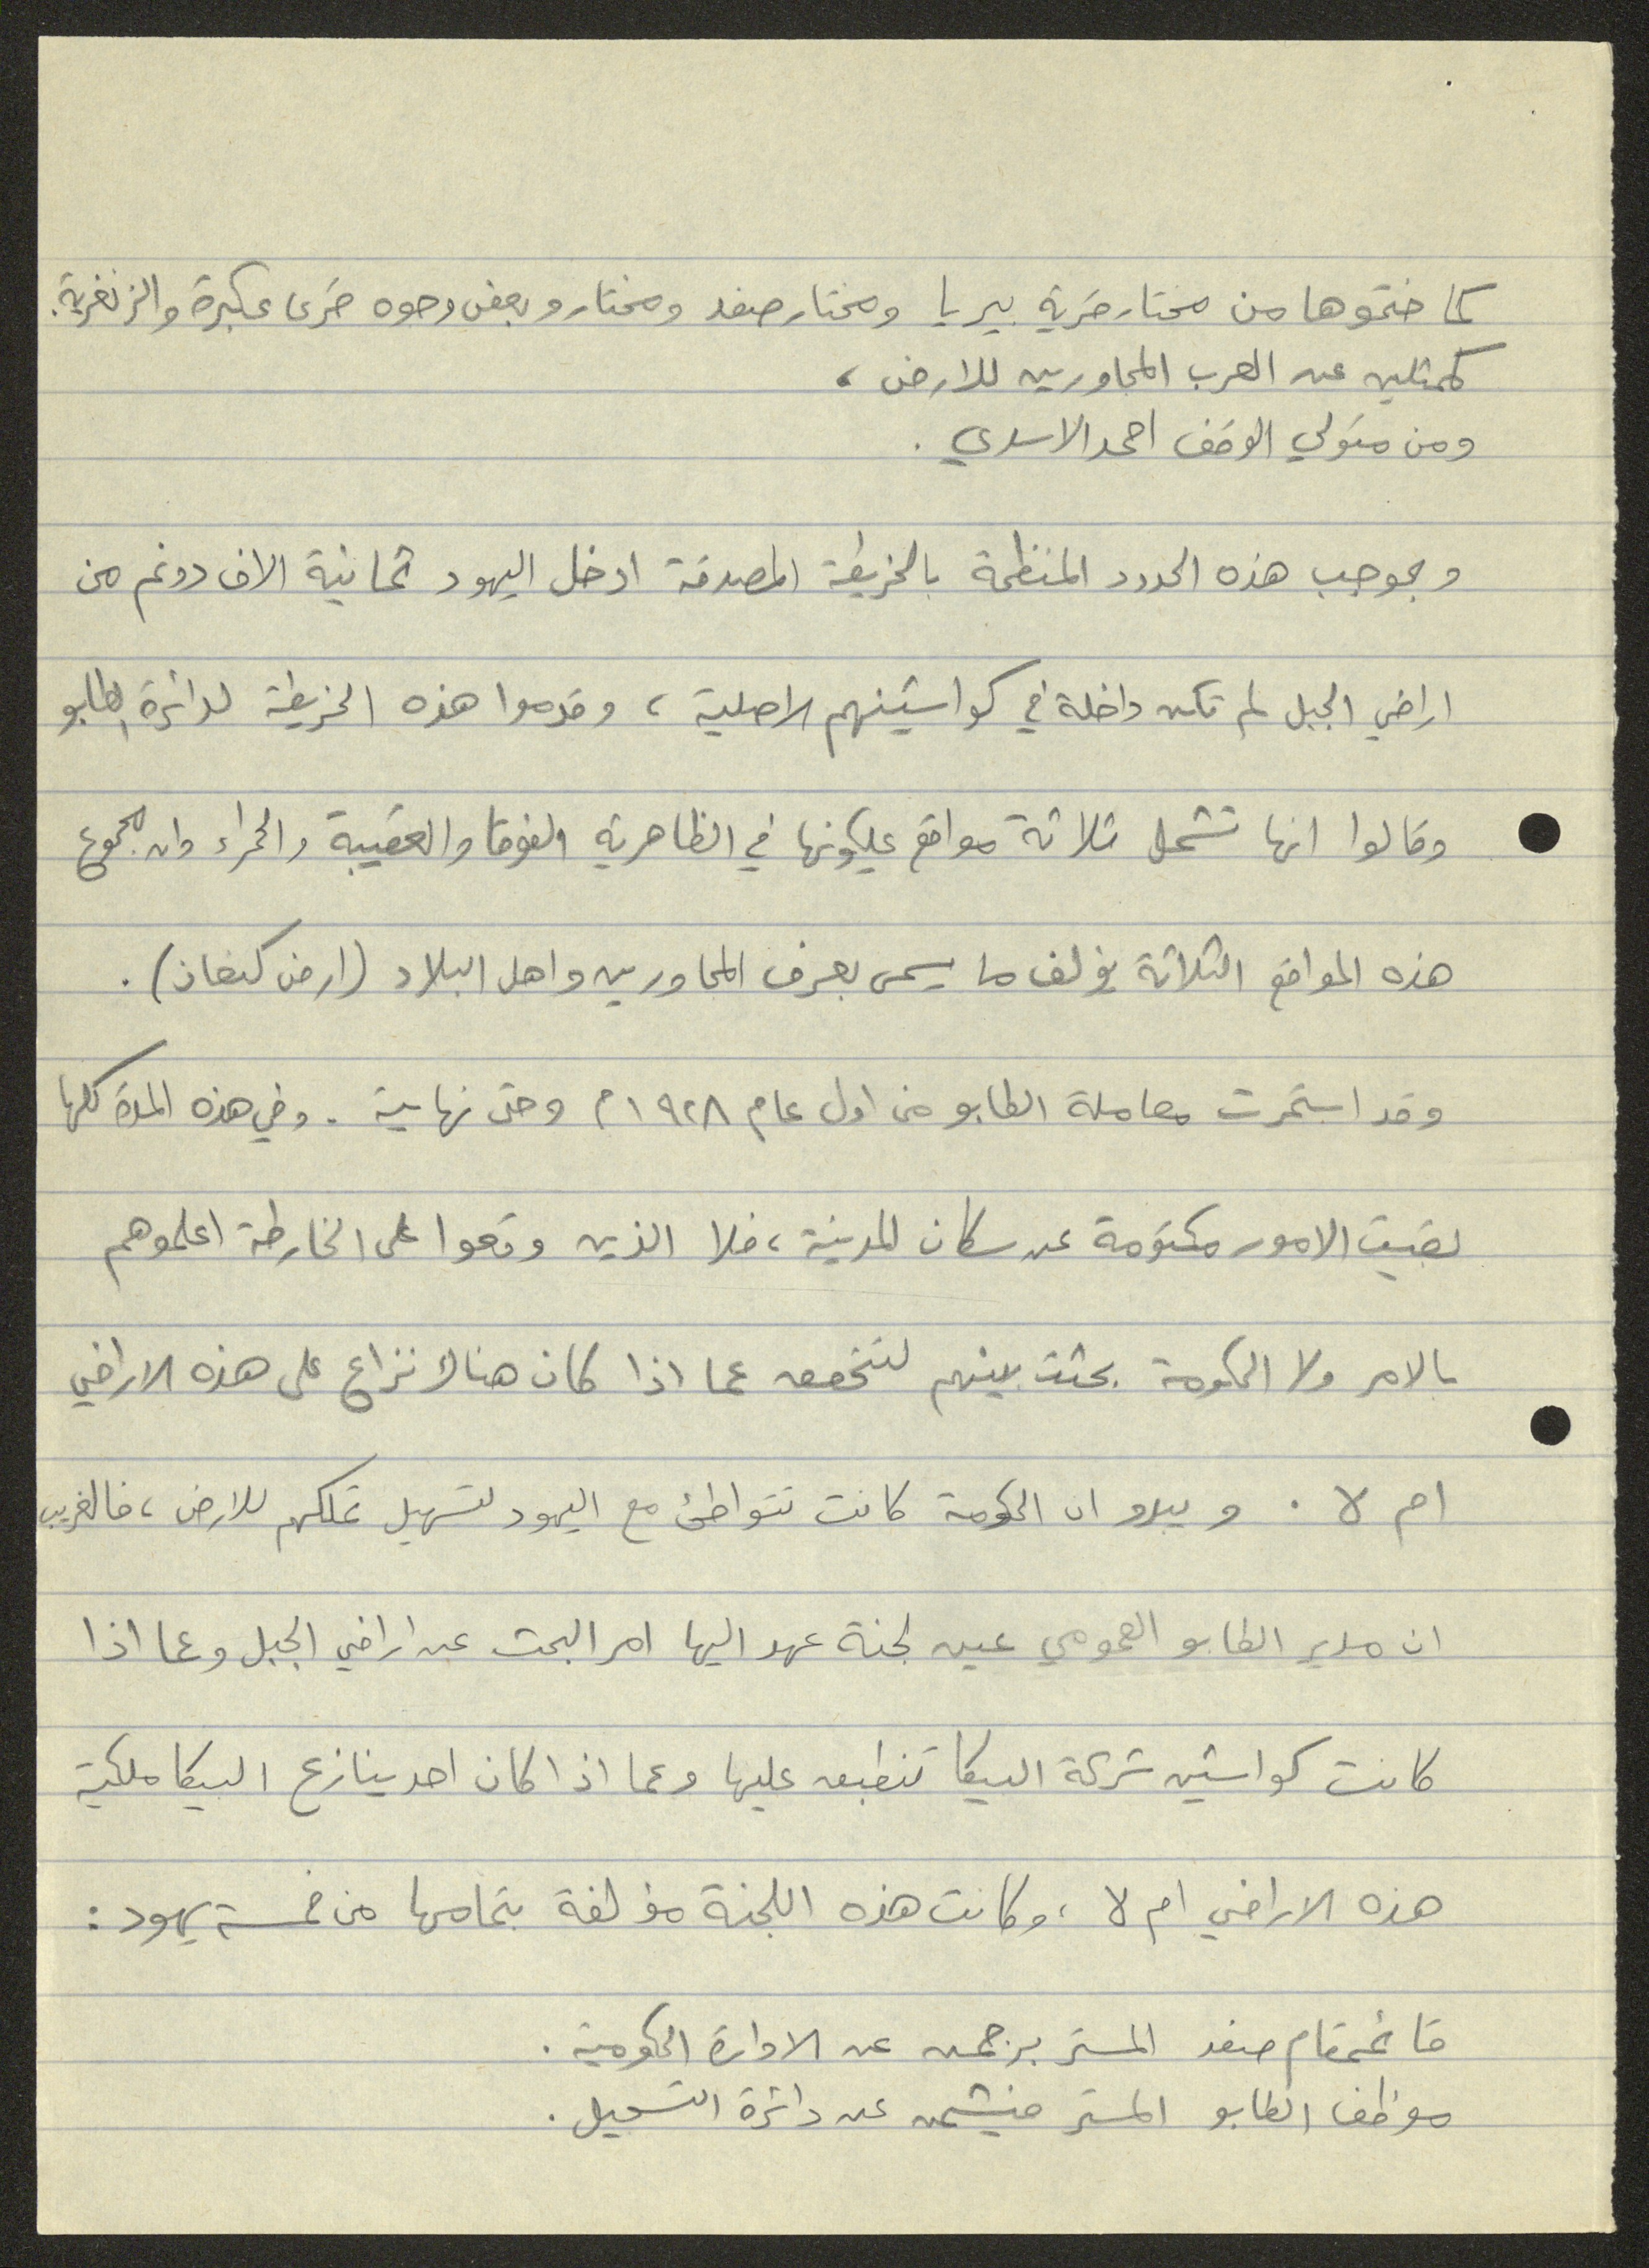 كما ختموها من مختار قرية بيريا ومختار صفد ومختارو بعض وجوه قرى عكبرة والزنغرية.
كممثلين عن العرب المجاورين للارض ،
ومن متولي الوقف احمد الاسدي .
وبموجب هذه الحدود المنظمة بالخريطة المصدقة ادخل اليهود ثمانية الاف دونم من
اراضي الجبل لم تكن داخلة في كواشينهم الاصلية ، وقدموا هذه الخريطة لدائرة الطابو
وقالوا انها تشمل ثلاثة مواقع يملكونها في الظاهرية الفوقا والعقيبة والحمراء وان مجموع
هذه المواقع الثلاثة يؤلف ما يسمى بعرف المجاورين واهل البلاد (ارض كنعان) .
وقد استمرت معاملة الطابو من اول عام ١٩٢٨ م وحتى نهايية . وفي هذه المدة كلها
بقيت الامور مكتومة عن سكان المدينة ، فلا الذين وقعوا على الخارطة اعلموهم
بالامر ولا الحكومة بحثت بينهم لتتحقق عما اذا كان هنالك نزاع على هذه الاراضي
ام لا . ويبدو ان الحكومة كانت تتواطئ مع اليهود لتسهيل تملكهم للارض ، فالغريب
ان مدير الطابو العمومي عين لجنة عهد اليها امر البحث عن اراضي الجبل وعما اذا
كانت كواشين شركة البيكا تنطبق عليها وعما اذا كان احد ينازع البيكا ملكية
هذه الاراضي ام لا ، وكانت هذه اللجنة مؤلفة بتمامها من خمسة يهود :
قائمقام صفد المستر برجمن عن الادارة الحكومية .
موظف الطابو المستر فيشمن عن دائرة التسجيل .